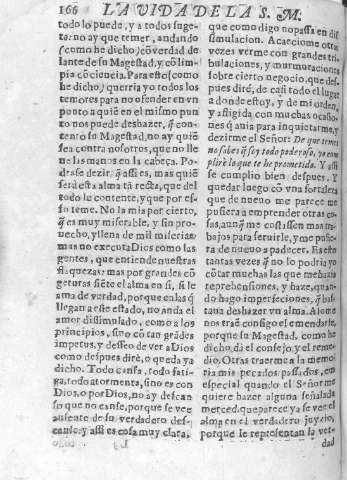 166 LA VIDA DE LA S. M.
todo lo puede, y a todos suge-
ta: no ay que temer, andando
(como he dicho) cō verdad de
lante de su Magestad, y cō lim
pia cōciencia. Para esto (como
he dicho) querria yo todos los
temores para no ofender en vn
punto a quiē en el mismo pun
to nos puede deshazer, q̄ con-
tento su Magestad, no ay quiē
sea contra nosotros, que no lle
ue las manos en la cabeça. Po-
drase dezir, q̄ assi es, mas quiē
será esta alma tā recta, que del
todo le contente, y que por es-
so teme. No la mia por cierto,
q̄ es muy miserable, y sin pro-
uecho, y llena de mil miserias:
mas no executa Dios como las
gentes, que entiende nuestras
flaquezas: mas por grandes cō
geturas siēte el alma en si, si le
ama de verdad, porque en las q̄
llegan a este estado, no anda el
amor dissimulado, como a los
principios, sino cō tan grādes
impetus, y desseo de ver a Dios
como despues diré, o queda ya
dicho. Todo cansa, todo fati-
ga, todo atormenta, sino es con
Dios, o por Dios, no ay descan
so que no canse, porque se vee
ausente de su verdadero des-
canso: y assi es cosa muy clara,
que como digo no passa en dis
simulacion. Acaecióme otra
vezes verme con grandes tri-
bulaciones, y murmuracion
sobre cierto negocio, que des-
pues diré, de casi todo el lugar
a donde estoy, y de mi orden,
y afligida con muchas ocasio-
nes q̄ auia para inquietarme, y
dezirme el Señor: De que temes
no sabes q̄ soy todo poderoso, yo cum
plirè lo que te he prometido. Y assi
se cumplio bien despues. Y
quedar luego cō vna fortaleza
que de nueuo me parece me
pusiera a emprender otras co-
sas, aunq̄ me costassen mas tra-
bajos para seruirle, y me pusie-
ra de nueuo a padecer. Es esto
tantas vezes q̄ no lo podria yo
cōtar muchas las que me hazia
reprehensiones, y haze, quan-
do hago imperfeciones, q̄ bas-
tan a deshazer vn alma. Alome
nos traē consigo el emendarse,
porque su Magestad, como he
dicho, dà el consejo, y el reme-
dio. Otras traerme a la memo
ria mis pecados passados, en
especial quando el Señor me
quiere hazer alguna señalada
merced, que parece ya se vee el
alma en el verdadero juyzio,
porque le representan la ver-
dad